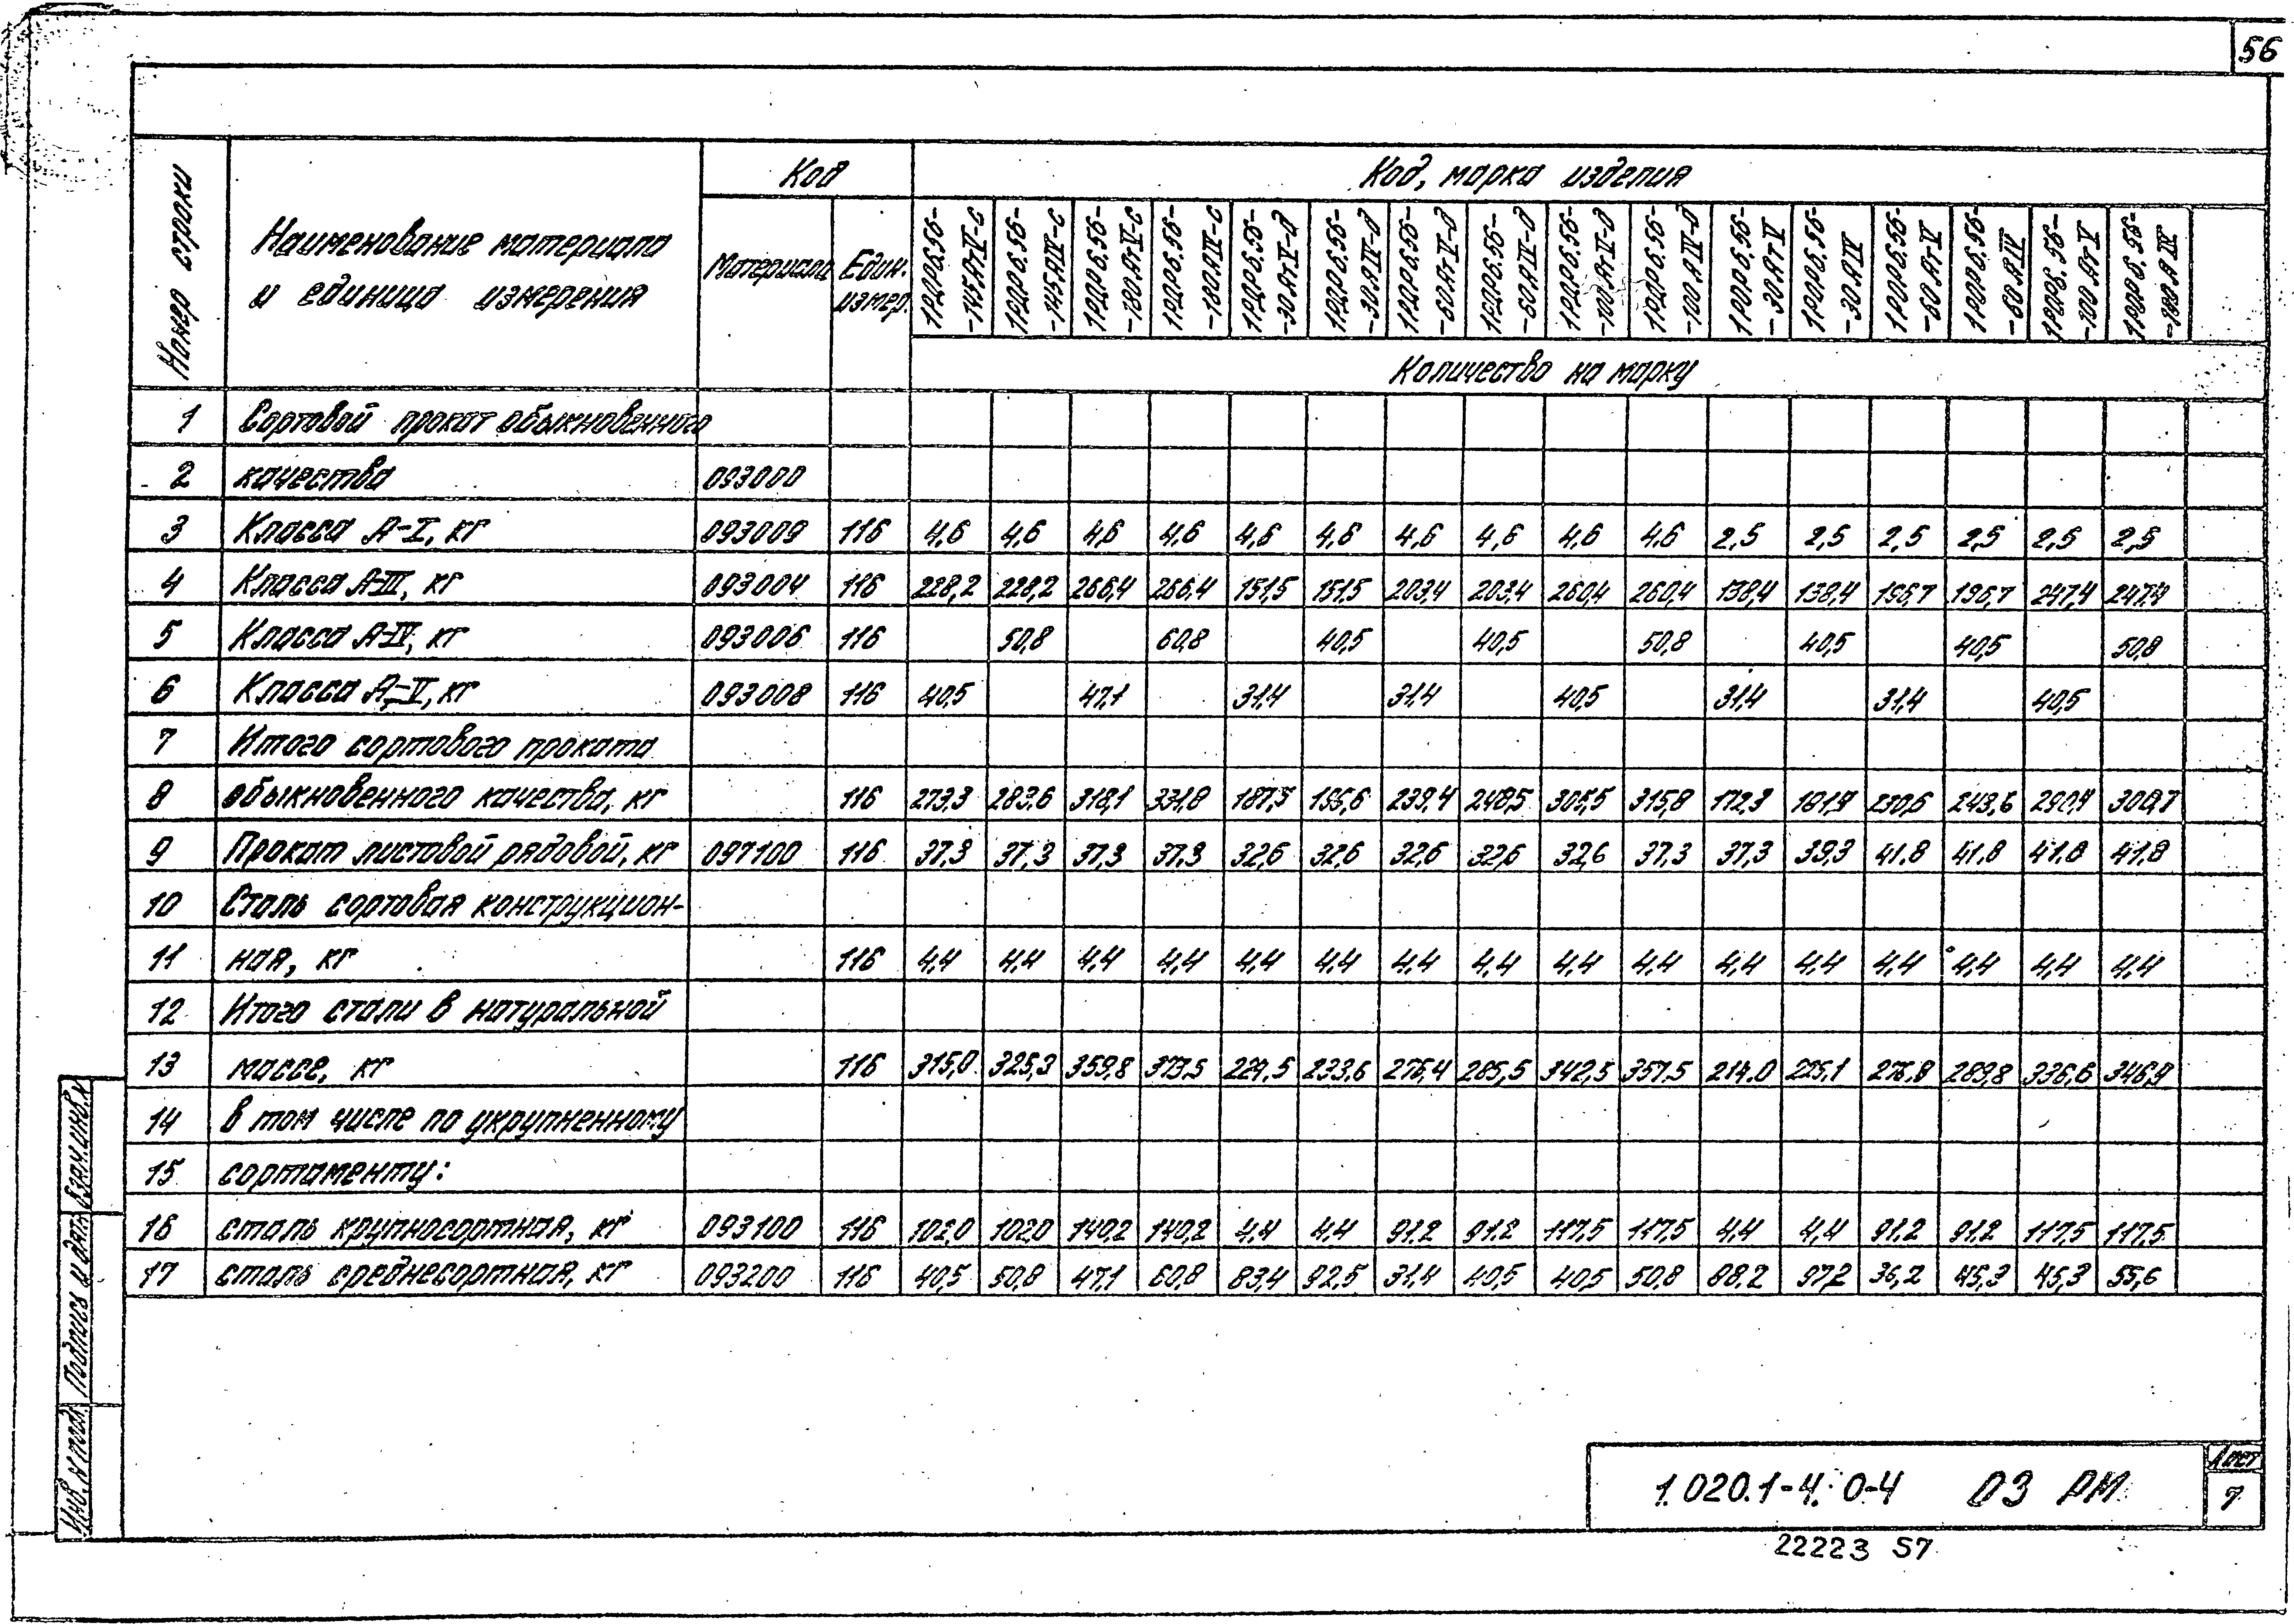 56
Номер строки
Наименование материала
и единица измерения
Код
Код, марка изделия
Материала
Един. измер.
1РДР6.56-145АтV-С
1РДР6.56-145АIV-С
1РДР6.56-180АтV-С
1РДР6.56-180АIV-С
1РДР6.56-30АтV-д
1РДР6.56-30АIV-д
1РДР6.56-60АтV-д
1РДР6.56-60АIV-д
1РДР6.56-100АтV-д
1РДР6.56-100АIV-д
1РОР6.56-30АтV
1РОР6.56-30АIV
1РОР6.56-60АтV
1РОР6.56-60АIV
1РОР6.56-100АтV
1РОР6.56-100АIV
Количество на марку
1 Сортовой прокат обыкновенного
2 качества 093000
3 Класса А-I, кг 093009 116 4,6 4,6 4,6 4,6 4,6 4,6 4,6 4,6 4,6 4,6 2,5 2,5 2,5 2,5 2,5 2,5
4 Класса А-III, кг 093004 116 228,2 228,2 266,4 266,4 151,5 151,5 203,4 203,4 260,4 260,4 138,4 138,4 196,7 196,7 247,4 247,4
5 Класса А-IV, кг 093006 116 50,8 60,8 40,5 40,5 50,8 40,5 40,5 50,8
6 Класса А-V, кг 093008 116 40,5 47,1 31,4 31,4 40,5 31,4 31,4 40,5
7 Итого сортового проката
8 обыкновенного качества, кг 116 273,3 283,6 318,1 331,8 187,5 196,6 239,4 248,5 305,5 315,8 172,3 181,4 230,6 243,6 290,4 300,7
9 Прокат листовой рядовой, кг 097100 116 37,3 37,3 37,3 37,3 32,6 32,6 32,6 32,6 32,6 37,3 37,3 39,3 41,8 41,8 41,8 41,8
10 Сталь сортовая конструкцион-
11 ная, кг 116 4,4 4,4 4,4 4,4 4,4 4,4 4,4 4,4 4,4 4,4 4,4 4,4 4,4 4,4 4,4 4,4
12 Итого стали в натуральной
13 массе, кг 116 315,0 325,3 359,8 373,5 224,5 233,6 276,4 285,5 342,5 357,5 214,0 225,1 276,8 289,8 336,6 346,9
14 в том числе по укрупненному
15 сортаменту:
16 сталь крупносортная, кг 093100 116 102,0 102,0 140,2 140,2 4,4 4,4 91,2 91,2 117,5 117,5 4,4 4,4 91,2 91,2 117,5 117,5
17 сталь среднесортная, кг 093200 116 40,5 50,8 47,1 60,8 83,4 92,5 31,4 40,5 40,5 50,8 88,2 97,2 36,2 45,3 45,3 55,6
Взам. инв. №
Подпись и дата
Инв. № подл.
1.020.1-4. 0-4 03 РМ
Лист
7
22223 57